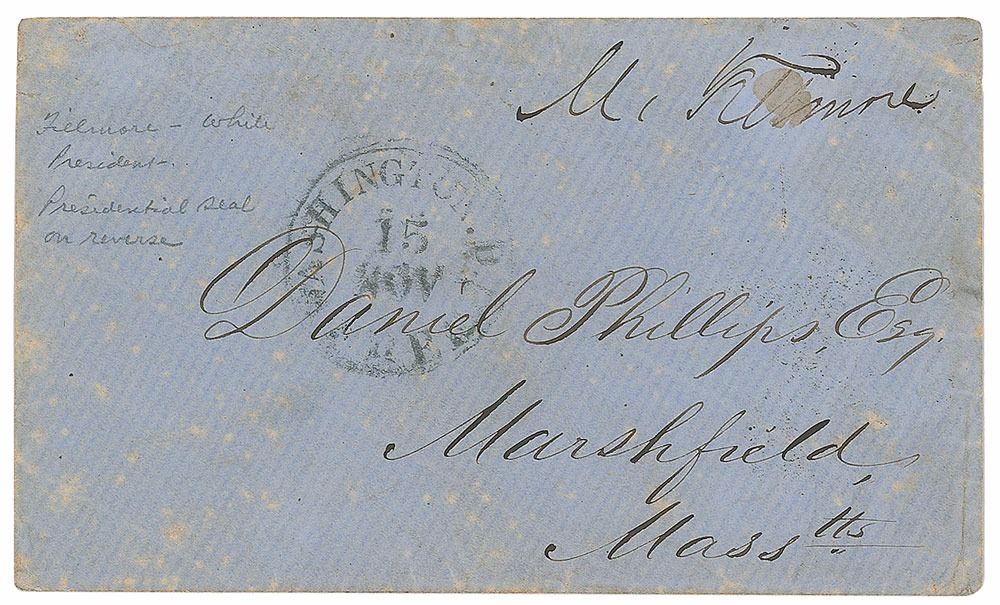 M. Fillmore
Fillmore - while
President.
Presidential seal
on reverse
WASHINGTON. D.
15
NOV
FREE
Daniel Phillips, Esq.
Marshfield,
Masstts